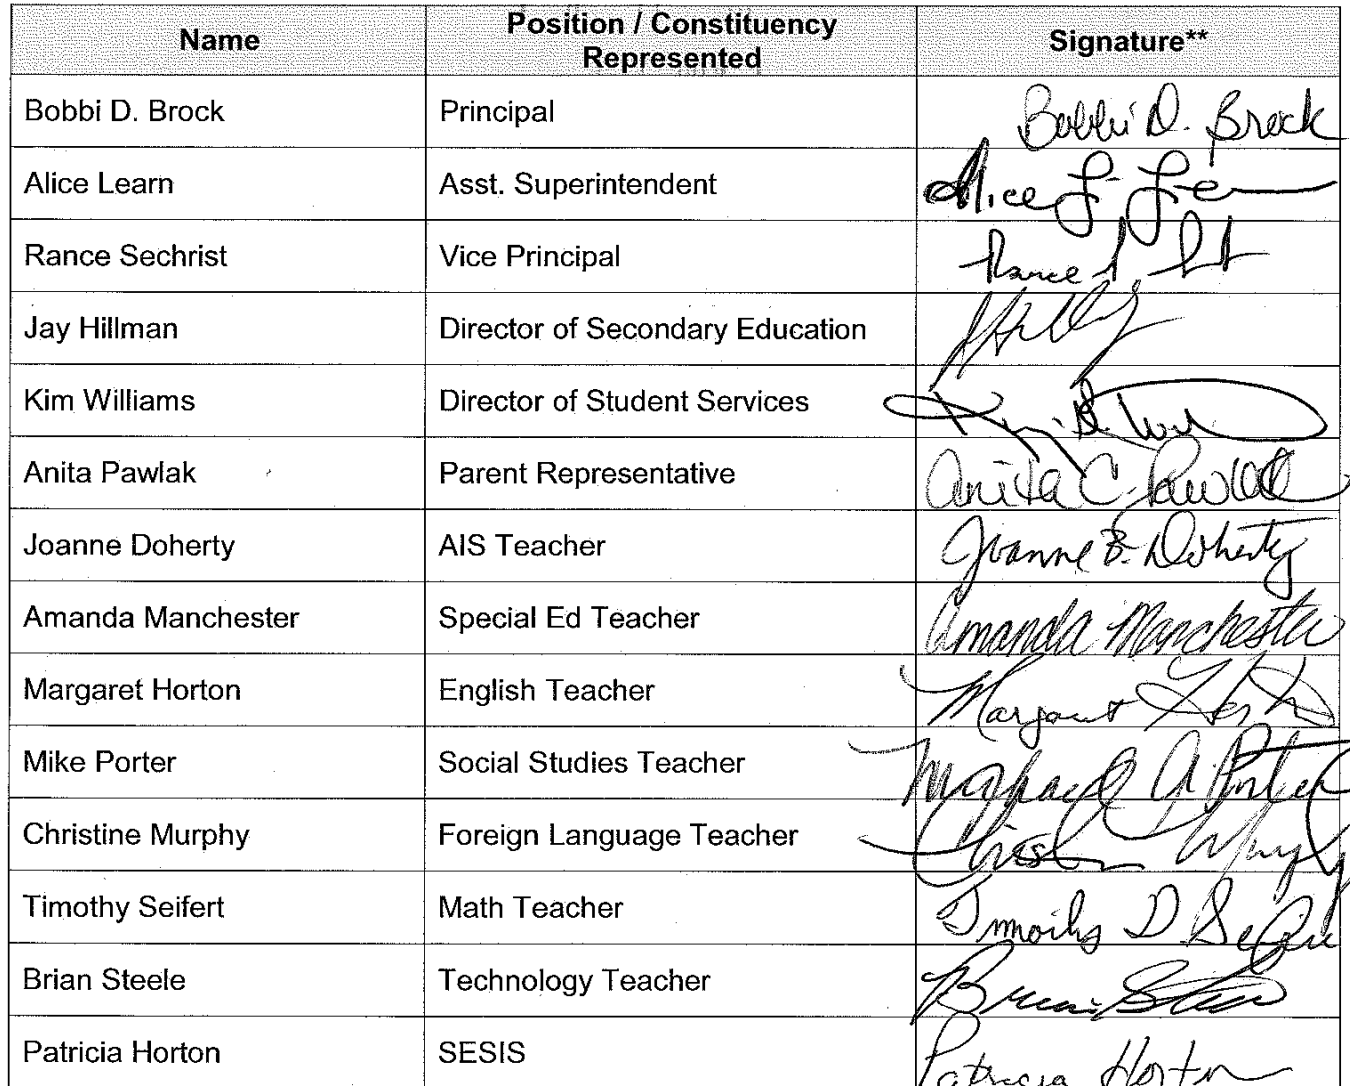 Name Position / Constituency Represented Signature**
Bobbi D. Brock Principal Bobbi D. Brock
Alice Learn Asst. Superintendent Alice
Rance Sechrist Vice Principal Rance
Jay Hillman Director of Secondary Education
Kim Williams Director of Student Services
Anita Pawlak Parent Representative Anita C. Pawlak
Joanne Doherty AIS Teacher Joanne B. Doherty
Amanda Manchester Special Ed Teacher Amanda Manchester
Margaret Horton English Teacher Margaret Horton
Mike Porter Social Studies Teacher Michael A. Porter
Christine Murphy Foreign Language Teacher Christine Murphy
Timothy Seifert Math Teacher Timothy D Seifert
Brian Steele Technology Teacher Brian Steele
Patricia Horton SESIS Patricia Horton